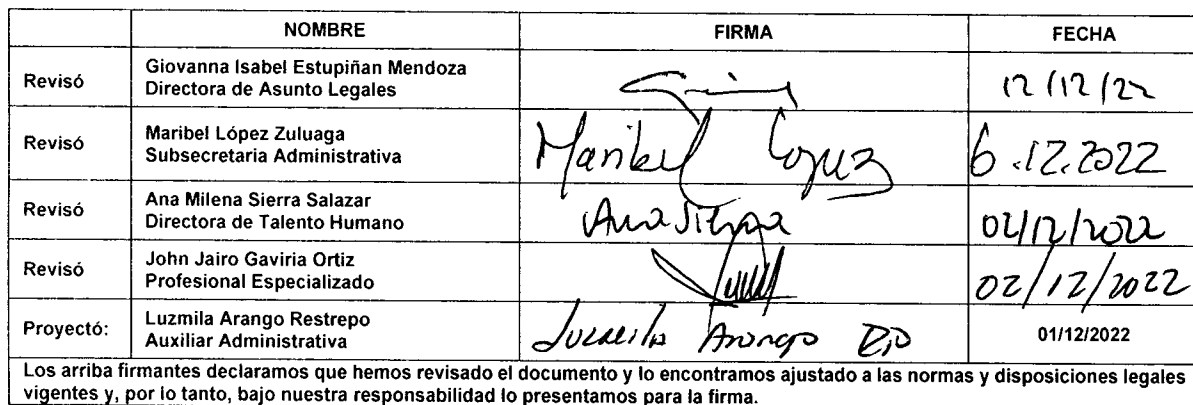 NOMBRE FIRMA FECHA
Revisó Giovanna Isabel Estupiñan Mendoza
Directora de Asunto Legales 12/12/22
Revisó Maribel López Zuluaga
Subsecretaria Administrativa Maribel Lopez 6.12.2022
Revisó Ana Milena Sierra Salazar
Directora de Talento Humano Ana Sierra 02/12/2022
Revisó John Jairo Gaviria Ortiz
Profesional Especializado 02/12/2022
Proyectó: Luzmila Arango Restrepo
Auxiliar Administrativa Luzmila Arango 01/12/2022
Los arriba firmantes declaramos que hemos revisado el documento y lo encontramos ajustado a las normas y disposiciones legales
vigentes y, por lo tanto, bajo nuestra responsabilidad lo presentamos para la firma.